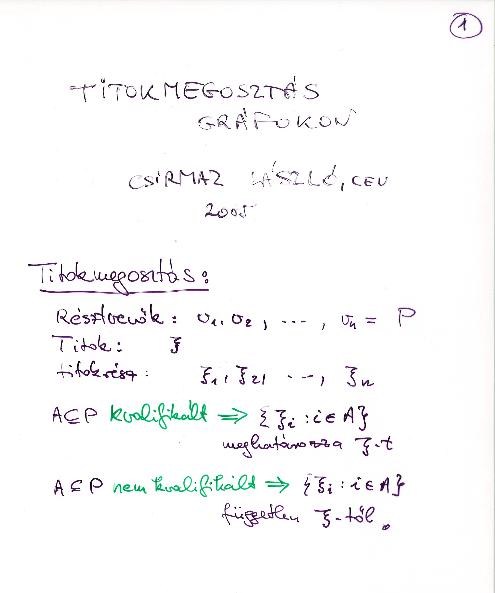 1
TITOKMEGOSZTÁS
GRÁFOKON
CSIRMAZ LÁSZLÓ, CEU
2005
Titokmegosztás:
Résztvevők: υ₁, υ₂, ..., υₙ = P
Titok: ξ
titokrész: ξ₁, ξ₂, ..., ξₙ
A⊆P kvalifikált ⇒ {ξᵢ : i∈A}
meghatározza ξ-t
A⊆P nem kvalifikált ⇒ {ξᵢ : i∈A}
független ξ-től.